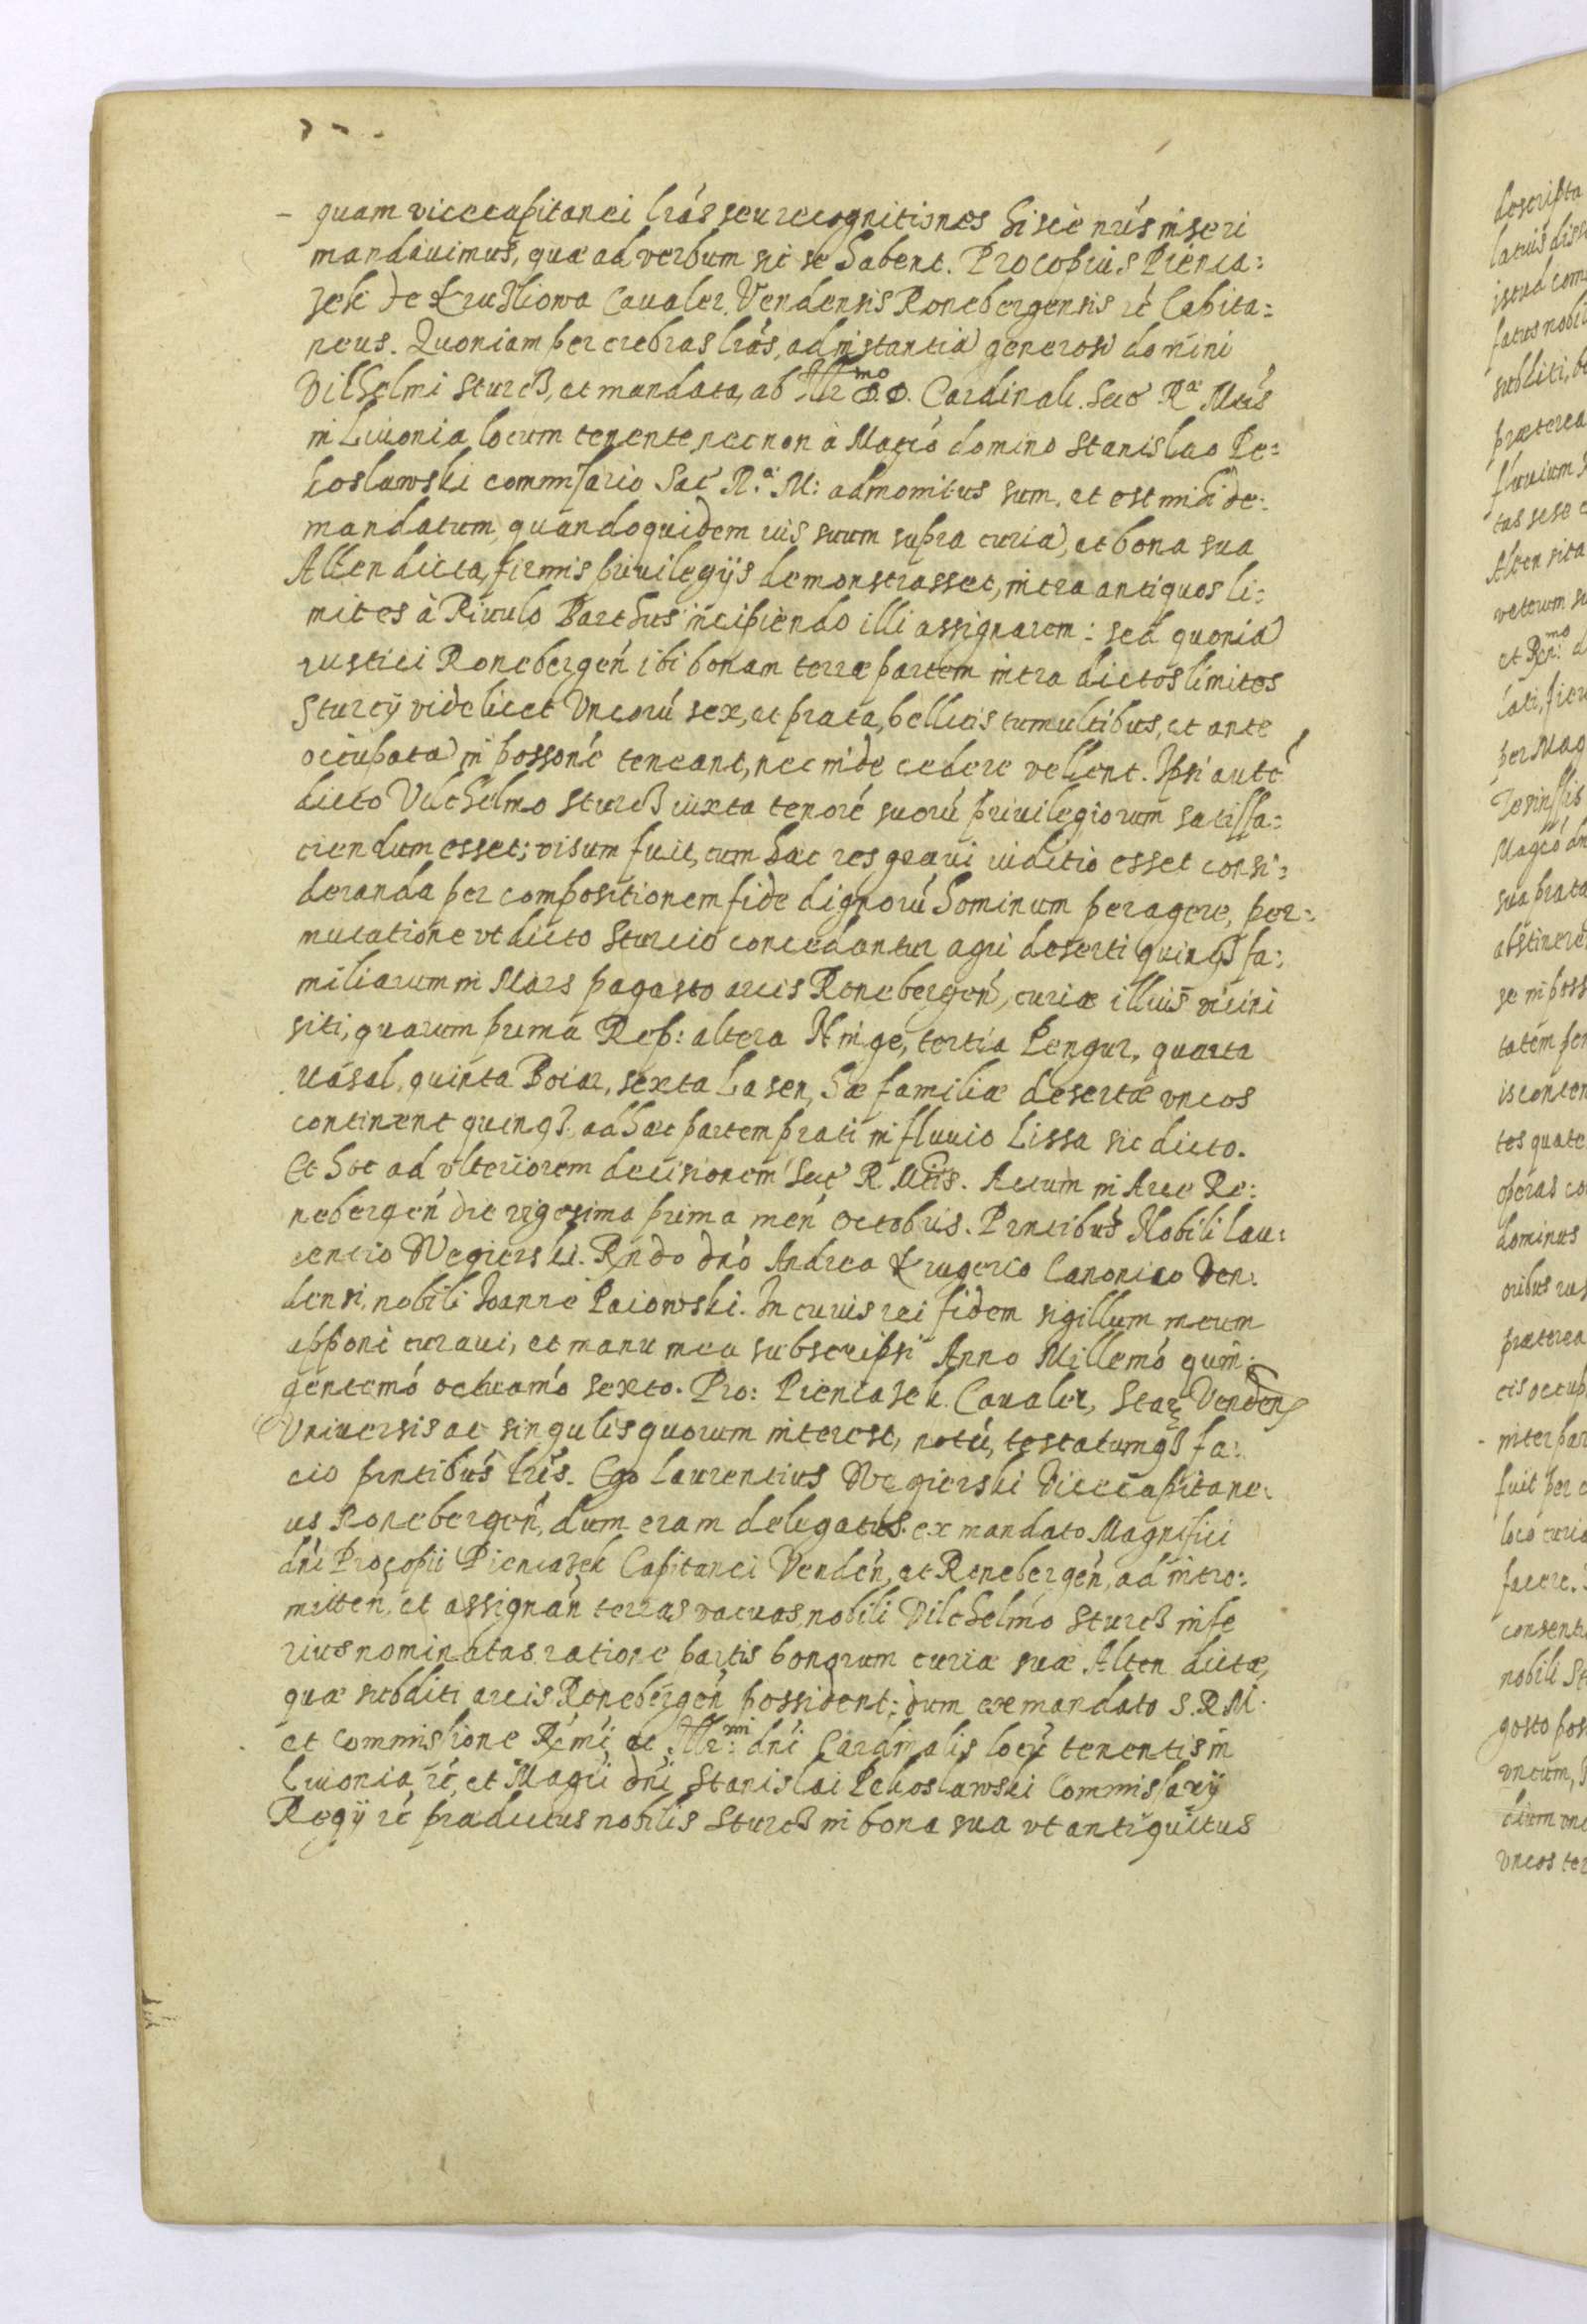 quam vicecapitanei lrás seu recognitiones hisce nris inseri
mandavimus, quæ ad verbum sic se habent. Procopius Pienia:
zek de Kruzliowa Cavaler Vendensis Ronebergensis rc Capita:
neus. Quoniam per crebras lrás, ad instantia generosi domini
Vilhelmi Sturcz, et mandata, ab Illrmo D. D. Cardinale Sac Ra Mtis
in Livonia locum tenente, nec non à Magco domino Stanislao Pe:
koslawski commissario Sac R.æ M: admonitus sum, et est mihi de:
mandatum, quandoquidem ius suum supra curia, et bona sua
Alten dicta, firmis privilegijs demonstrasset, intra antiquos li:
mites à Rivulo Barthus incipiendo illi assignarem: sed quonia
rustici Ronebergen ibi bonam terræ partem intra dictos limites
Sturcij videlicet Vncorú sex, et prata, bellicis tumultibus, et ante
occupata in possoné teneant, nec inde cedere velient. Ipsi auté
dicto Vilchelmo Sturcz iuxta tenoré suorú privilegiorum satisfa:
ciendum esset; visum fuit, cum hæc res gravi iuditio esset consi:
deranda per compositionem fide dignorú hominum peragere, per:
mutatione vt dicto Sturcio concedantur agri deserti quinq fa:
miliarum in Mars pagasto arcis Ronebergen, curiæ illius vicini
siti, quarum prima Rep: altera Ninge, tertia Pengur, quarta
Vasal, quinta Boiar, sexta Lasen, hæ familiæ desertæ vncos
continent quinq. ad hæc partem prati in fluvio Lissa sic dicto.
Et hoc ad vlteriorem decisionem Sac R. Mtis. Actum in Arce Ro:
nebergen die vigesima prima men Octobris. Prntibus Nobili Lau:
rentio Wegierski. Rndo dno Andrea Krugerio Canonico Ven:
densi, nobili Joanne Paiowski. In cuius rei fidem sigillum meum
apponi curavi, et manu mea subscripsi Anno Millemó quin:
gentemó octuamó sexto. Pro: Pieniazek Cavaler, Star Venden
Vniversis ac singulis quorum interest, notú, testatumq fa:
cio prntibus lris. Ego Laurentius Wegierski Vicecapitane:
us Ronebergen, dum eram delegatus ex mandato Magnifici
dni Procopii Pieniazek Capitanei Venden, et Ronebergen, ad intro:
mitten, et assignan terras vacuas nobili Vilchelmo Sturcz infe
rius nominatas ratione partis bonorum curiæ suæ Alten dictæ,
quæ subditi arcis Ronebergen possident; dum ex mandato S. R. M.
et Commissione Rmi ac Illrmi dni Cardinalis locú tenentis in
Livonia, rc, et Magci dni Stanislai Pekoslawski Commissarij
Regij rc prædictus nobilis Sturcz in bona sua vt antiquitus